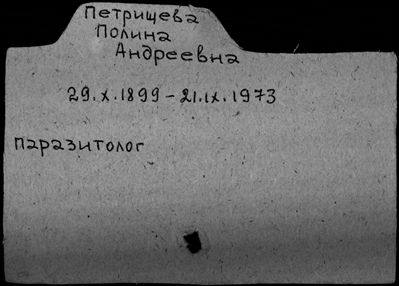 Петрищева
Полина
Андреевна
29.X.1899 – 21.IX.1973
паразитолог